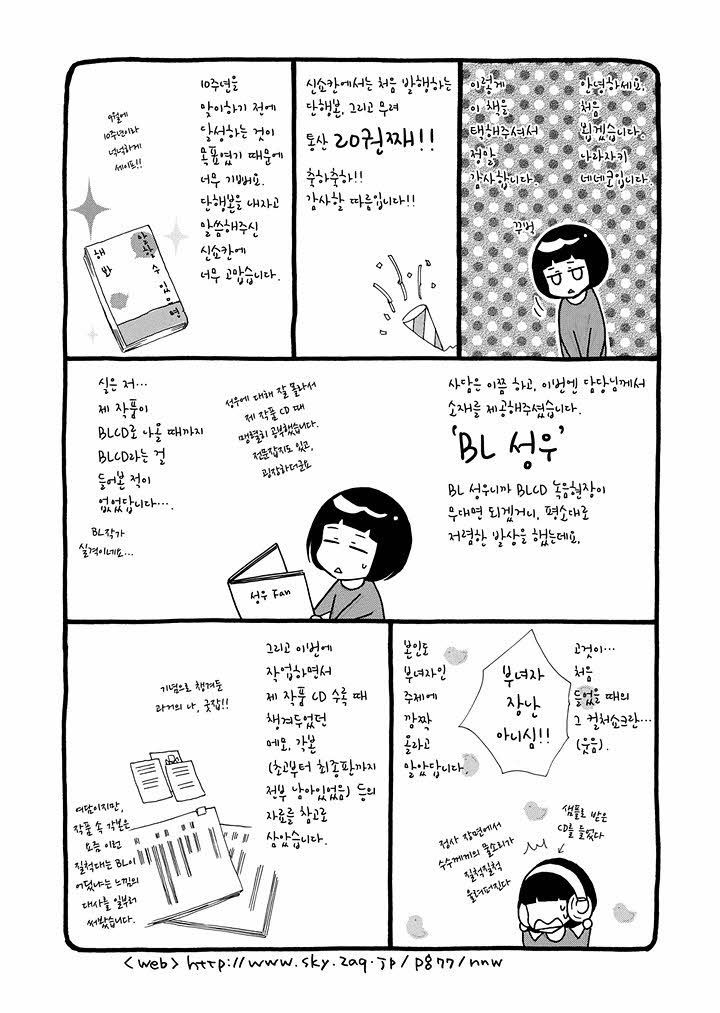 안녕하세요.
처음
뵙겠습니다.
나라자키
네네코입니다.
이렇게
이 책을
택해주셔서
정말
감사합니다.
꾸벅
신쇼칸에서는 처음 발행하는
단행본, 그리고 무려
통산 20권째!!
축하축하!!
감사할 따름입니다!!
10주년을
맞이하기 전에
달성하는 것이
목표였기 때문에
너무 기뻐요.
단행본을 내자고
말씀해주신
신쇼칸에
너무 고맙습니다.
9월에
10주년이라
넉넉하게
세이프!!
수 있으면
해 봐
사담은 이쯤 하고, 이번엔 담당님께서
소재를 제공해주셨습니다.
'BL 성우'
BL 성우니까 BLCD 녹음현장이
무대면 되겠거니, 평소대로
저렴한 발상을 했는데요,
성우에 대해 잘 몰라서
제 작품 CD 때
맹렬히 공부했습니다.
전문잡지도 있고,
굉장하더군요
실은 저…
제 작품이
BLCD로 나올 때까지
BLCD라는 걸
들어본 적이
없었답니다….
BL작가
실격이네요…
성우 Fan
고것이…
처음
들었을 때의
그 컬처쇼크란…
(웃음).
부녀자
장난
아니심!!
본인도
부녀자인
주제에
깜짝
놀라고
말았답니다.
샘플로 받은
CD를 들었다
정사 장면에서
수수께끼의 물소리가
질척질척
울려퍼진다
그리고 이번에
작업하면서
제 작품 CD 수록 때
챙겨두었던
메모, 각본
(초고부터 최종판까지
전부 남아있었음) 등의
자료를 참고로
삼았습니다.
기념으로 챙겨둔
과거의 나, 굿잡!!
여담이지만,
작품 속 각본은
요즘 이런
질척대는 BL이
어딨냐는 느낌의
대사를 일부러
써봤습니다.
<web> http://www.sky.zaq.jp/p877/nnw